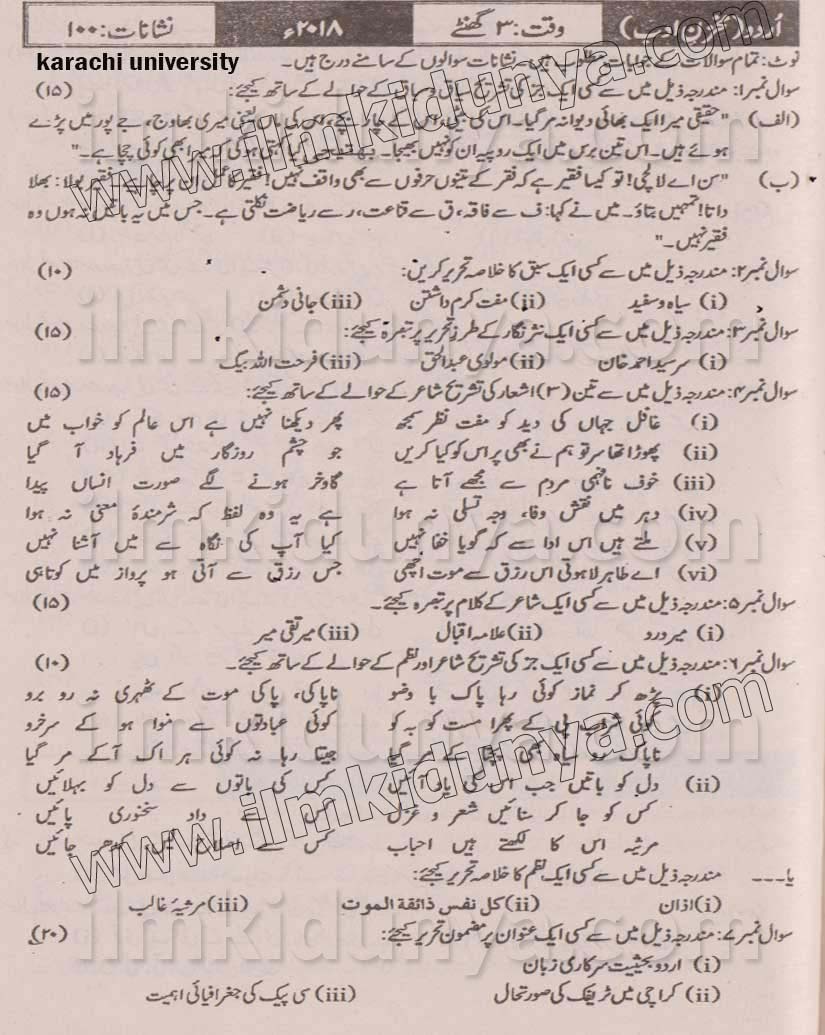 اُردو (مخزنِ ادب) وقت: ۳ گھنٹے ۲۰۱۸ء نشانات: ۱۰۰
karachi university
نوٹ: تمام سوالات کے جوابات مطلوب ہیں۔ نشانات سوالوں کے سامنے درج ہیں۔
سوال نمبر۱: مندرجہ ذیل میں سے کسی ایک جز کی تشریح سیاق و سباق کے حوالے کے ساتھ کیجئے: (۱۵)
(الف) "حقیقی میرا ایک بھائی دیوانہ مر گیا۔ اس کی بیٹی، اس کے چار بچے، اس کی ماں یعنی میری بھاوج، جے پور میں پڑے
ہوئے ہیں۔ اس تین برس میں ایک روپیہ ان کو نہیں بھیجا۔ بھتیجی کیا کہتی ہوگی کہ میرا بھی کوئی چچا ہے۔"
(ب) "سن اے لالچی! تو کیسا فقیر ہے کہ فقر کے تینوں حرفوں سے بھی واقف نہیں! فقیر کا عمل ان پر چاہیے۔ فقیر بولا: بھلا
داتا! تمہیں بتاؤ۔ میں نے کہا: ف سے فاقہ، ق سے قناعت، ر سے ریاضت نکلتی ہے۔ جس میں یہ باتیں نہ ہوں وہ
فقیر نہیں۔"
سوال نمبر۲: مندرجہ ذیل میں سے کسی ایک سبق کا خلاصہ تحریر کریں: (۱۰)
(i) سیاہ و سفید (ii) مفت کرم داشتن (iii) جانی دشمن
سوال نمبر۳: مندرجہ ذیل میں سے کسی ایک نثر نگار کے طرزِ تحریر پر تبصرہ کیجئے: (۱۵)
(i) سرسید احمد خان (ii) مولوی عبدالحق (iii) فرحت اللہ بیگ
سوال نمبر۴: مندرجہ ذیل میں سے تین (۳) اشعار کی تشریح شاعر کے حوالے کے ساتھ کیجئے: (۱۵)
(i) غافل جہاں کی دید کو مفت نظر سمجھ پھر دیکھنا نہیں ہے اس عالم کو خواب میں
(ii) پھوڑا تھا سر تو ہم نے بھی پر اس کو کیا کریں جو چشم روزگار میں فرہاد آ گیا
(iii) خوف نافہمی مردم سے مجھے آتا ہے گاؤخر ہونے لگے صورت انساں پیدا
(iv) دہر میں نقش وفاء وجہ تسلی نہ ہوا ہے یہ وہ لفظ کہ شرمندۂ معنی نہ ہوا
(v) ملتے ہیں اس ادا سے کہ گویا خفا نہیں کیا آپ کی نگاہ سے میں آشنا نہیں
(vi) اے طاہر لاہوتی اس رزق سے موت اچھی جس رزق سے آتی ہو پرواز میں کوتاہی
سوال نمبر۵: مندرجہ ذیل میں سے کسی ایک شاعر کے کلام پر تبصرہ کیجئے۔ (۱۵)
(i) میر درد (ii) علامہ اقبال (iii) میر تقی میر
سوال نمبر۶: مندرجہ ذیل میں سے کسی ایک جز کی تشریح شاعر اور نظم کے حوالے کے ساتھ کیجئے۔ (۱۰)
(i) پڑھ کر نماز کوئی رہا پاک با وضو ناپاکی، پاکی موت کے ٹھہری نہ رو برو
کوئی شراب پی کے پھرا مست کو بہ کو کوئی عبادتوں سے منوا ہو کے سرخرو
ناپاک رو سیاہ بھی پچتا کے مر گیا جیتا رہا نہ کوئی ہر اک آکے مر گیا
(ii) دل کو باتیں جب اس کی یاد آئیں کس کی باتوں سے دل کو بہلائیں
کس کو جا کر سنائیں شعر و غزل کس سے داد سخنوری پائیں
مرثیہ اس کا لکھتے ہیں احباب کس سے اصلاح لیں، کدھر جائیں
یا۔۔۔ مندرجہ ذیل میں سے کسی ایک نظم کا خلاصہ تحریر کیجئے:
(i) اذان (ii) کل نفس ذائقۃ الموت (iii) مرثیۂ غالب
سوال نمبر۷: مندرجہ ذیل میں سے کسی ایک عنوان پر مضمون تحریر کیجئے: (۲۰)
(i) اردو بحیثیت سرکاری زبان
(ii) کراچی میں ٹریفک کی صورتحال (iii) سی پیک کی جغرافیائی اہمیت
www.ilmkidunya.com